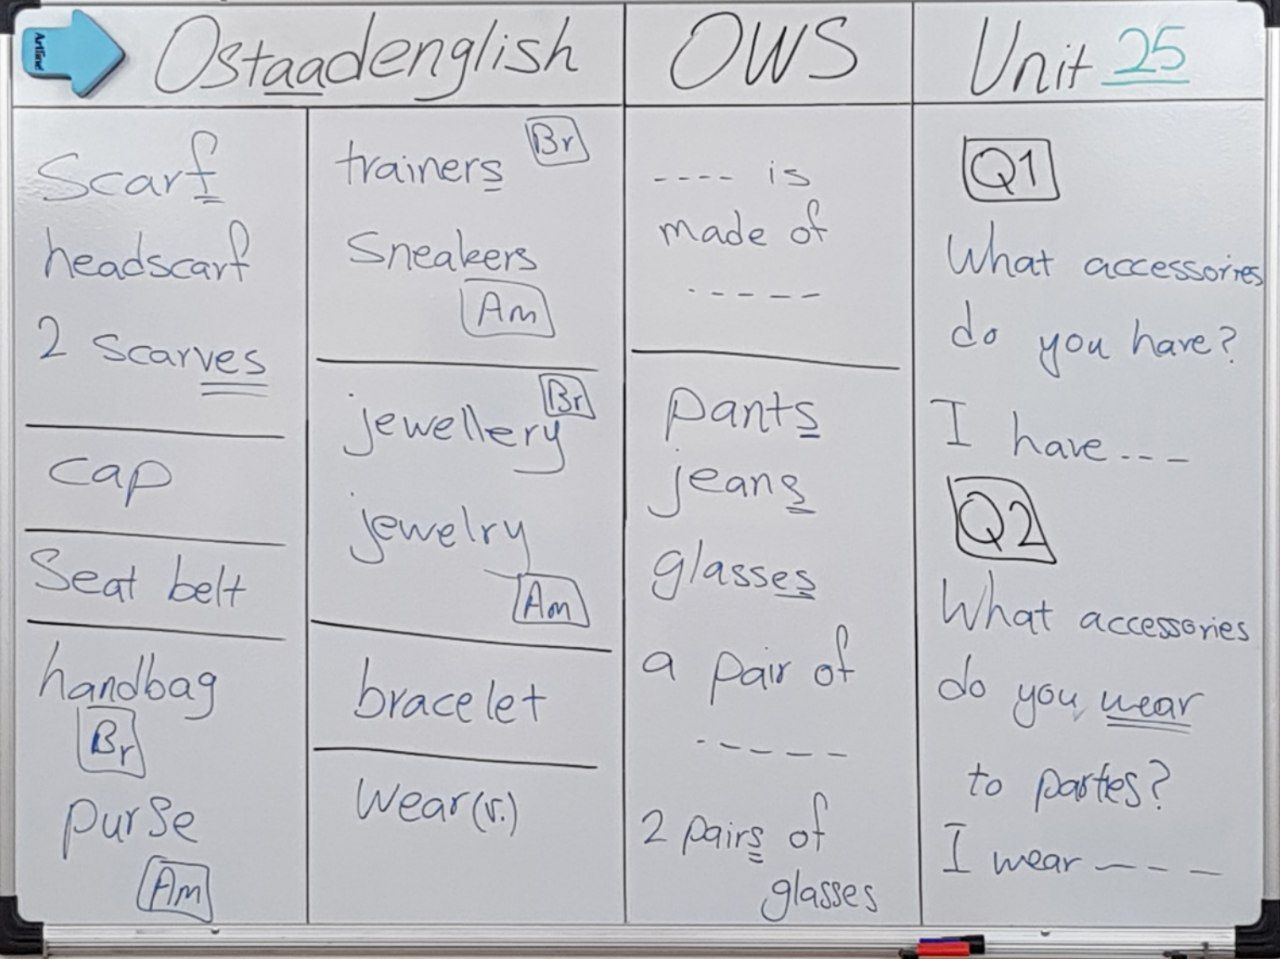 Artline
Ostaadenglish
OWS
Unit 25
Scarf
headscarf
2 scarves
cap
Seat belt
handbag
Br
purse
Am
trainers Br
Sneakers
Am
jewellery Br
jewelry
Am
bracelet
wear (v.)
---- is
made of
-----
pants
jeans
glasses
a pair of
-----
2 pairs of
glasses
Q1
What accessories
do you have?
I have ---
Q2
What accessories
do you wear
to parties?
I wear ---